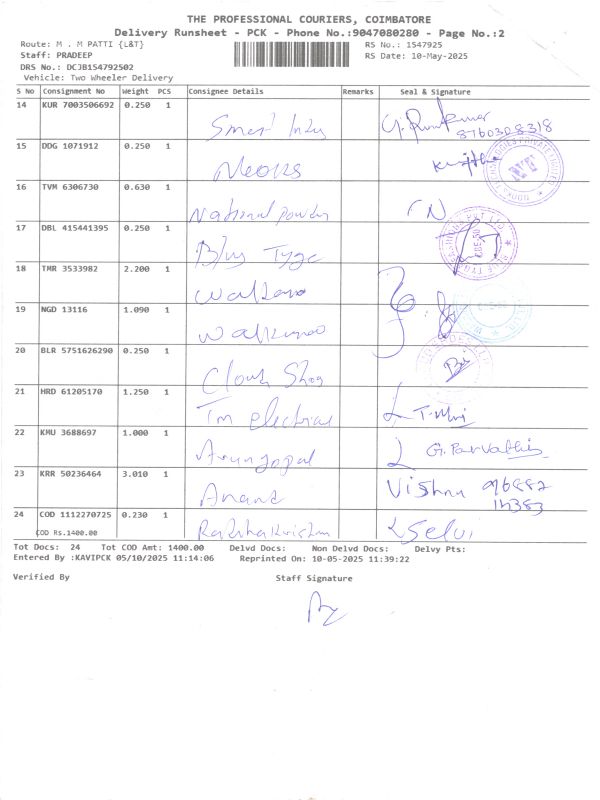 THE PROFESSIONAL COURIERS, COIMBATORE
Delivery Runsheet - PCK - Phone No.:9047080280 - Page No.:2
Route: M . M PATTI {L&T}
RS No.: 1547925
Staff: PRADEEP
RS Date: 10-May-2025
DRS No.: DCJB154792502
Vehicle: Two Wheeler Delivery
S No Consignment No Weight PCS Consignee Details Remarks Seal & Signature
14 KUR 7003506692 0.250 1
8760308318
15 DDG 1071912 0.250 1
16 TVM 6306730 0.630 1
National powder
17 DBL 415441395 0.250 1
Blue Tyge
18 TMR 3533982 2.200 1
19 NGD 13116 1.090 1
20 BLR 5751626290 0.250 1
21 HRD 61205170 1.250 1
Tm electrical
22 KMU 3688697 1.000 1
Arungopal G. Parvathi
23 KRR 50236464 3.010 1
Anand Vishnu
24 COD 1112270725 0.230 1
Selvi
COD Rs.1400.00
Tot Docs: 24 Tot COD Amt: 1400.00 Delvd Docs: Non Delvd Docs: Delvy Pts:
Entered By :KAVIPCK 05/10/2025 11:14:06 Reprinted On: 10-05-2025 11:39:22
Verified By Staff Signature